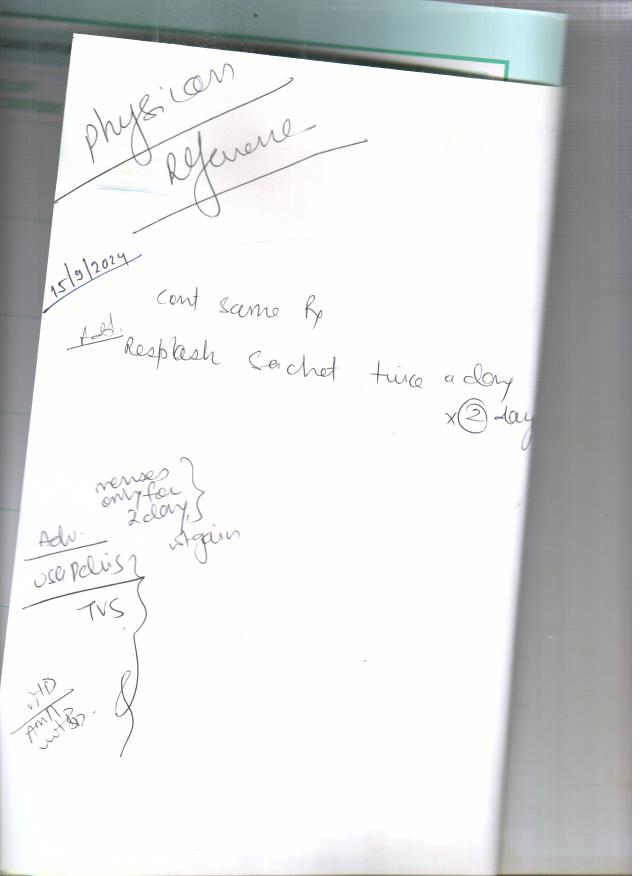 Physican
Reference
15/9/2024
Cont same Rx
Add.
Resplash Sachet twice a day
x 2 day
menses
only for
2 days
wt gain
Adv.
USG Pelvis
TVS